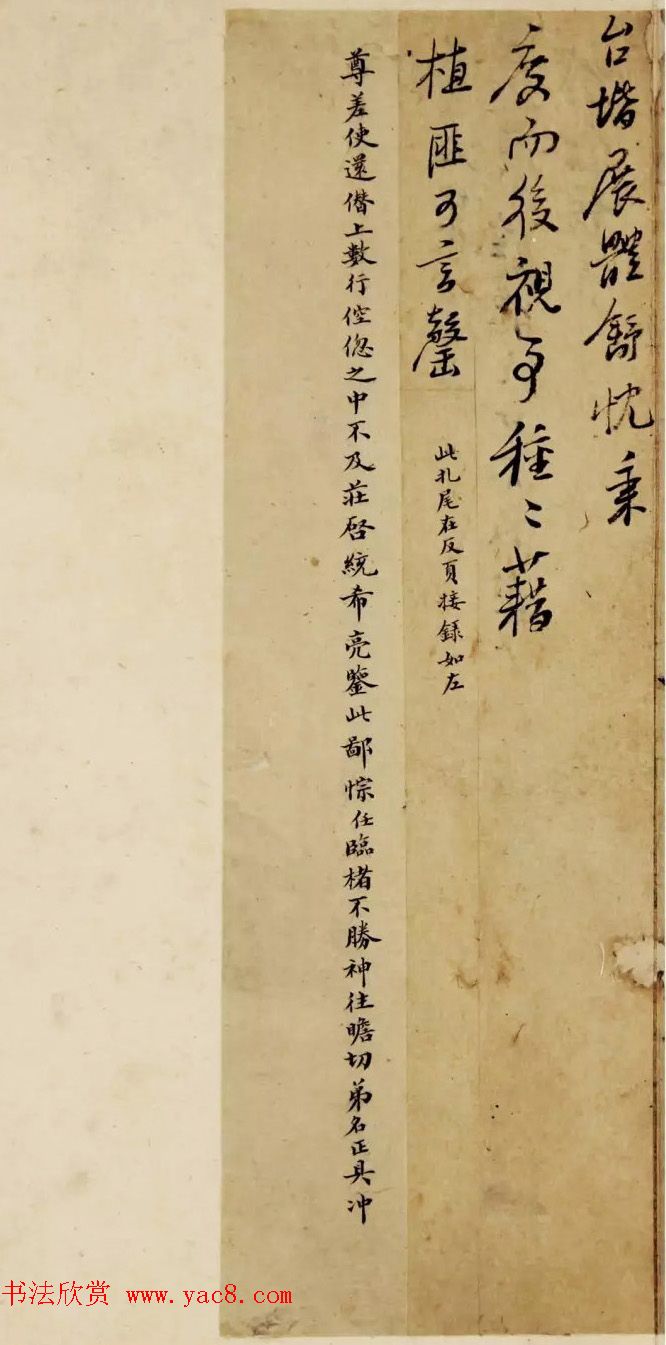 台堦展體舒忱秉
度而後視事種〻藉
植匪可言罄
此札尾在反頁接録如左
尊差使還僭上數行倥偬之中不及莊啓統希亮鑒此鄙悰任臨楮不勝神往瞻切弟名正具冲
书法欣赏 www.yac8.com